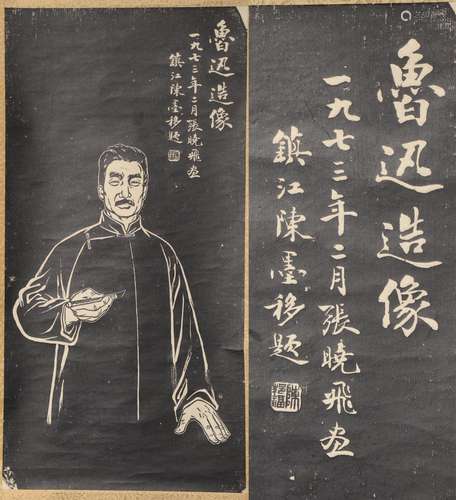 魯迅造像
一九七三年二月張曉飛畫
鎮江陳墨移題
魯迅造像
一九七三年二月張曉飛畫
鎮江陳墨移題